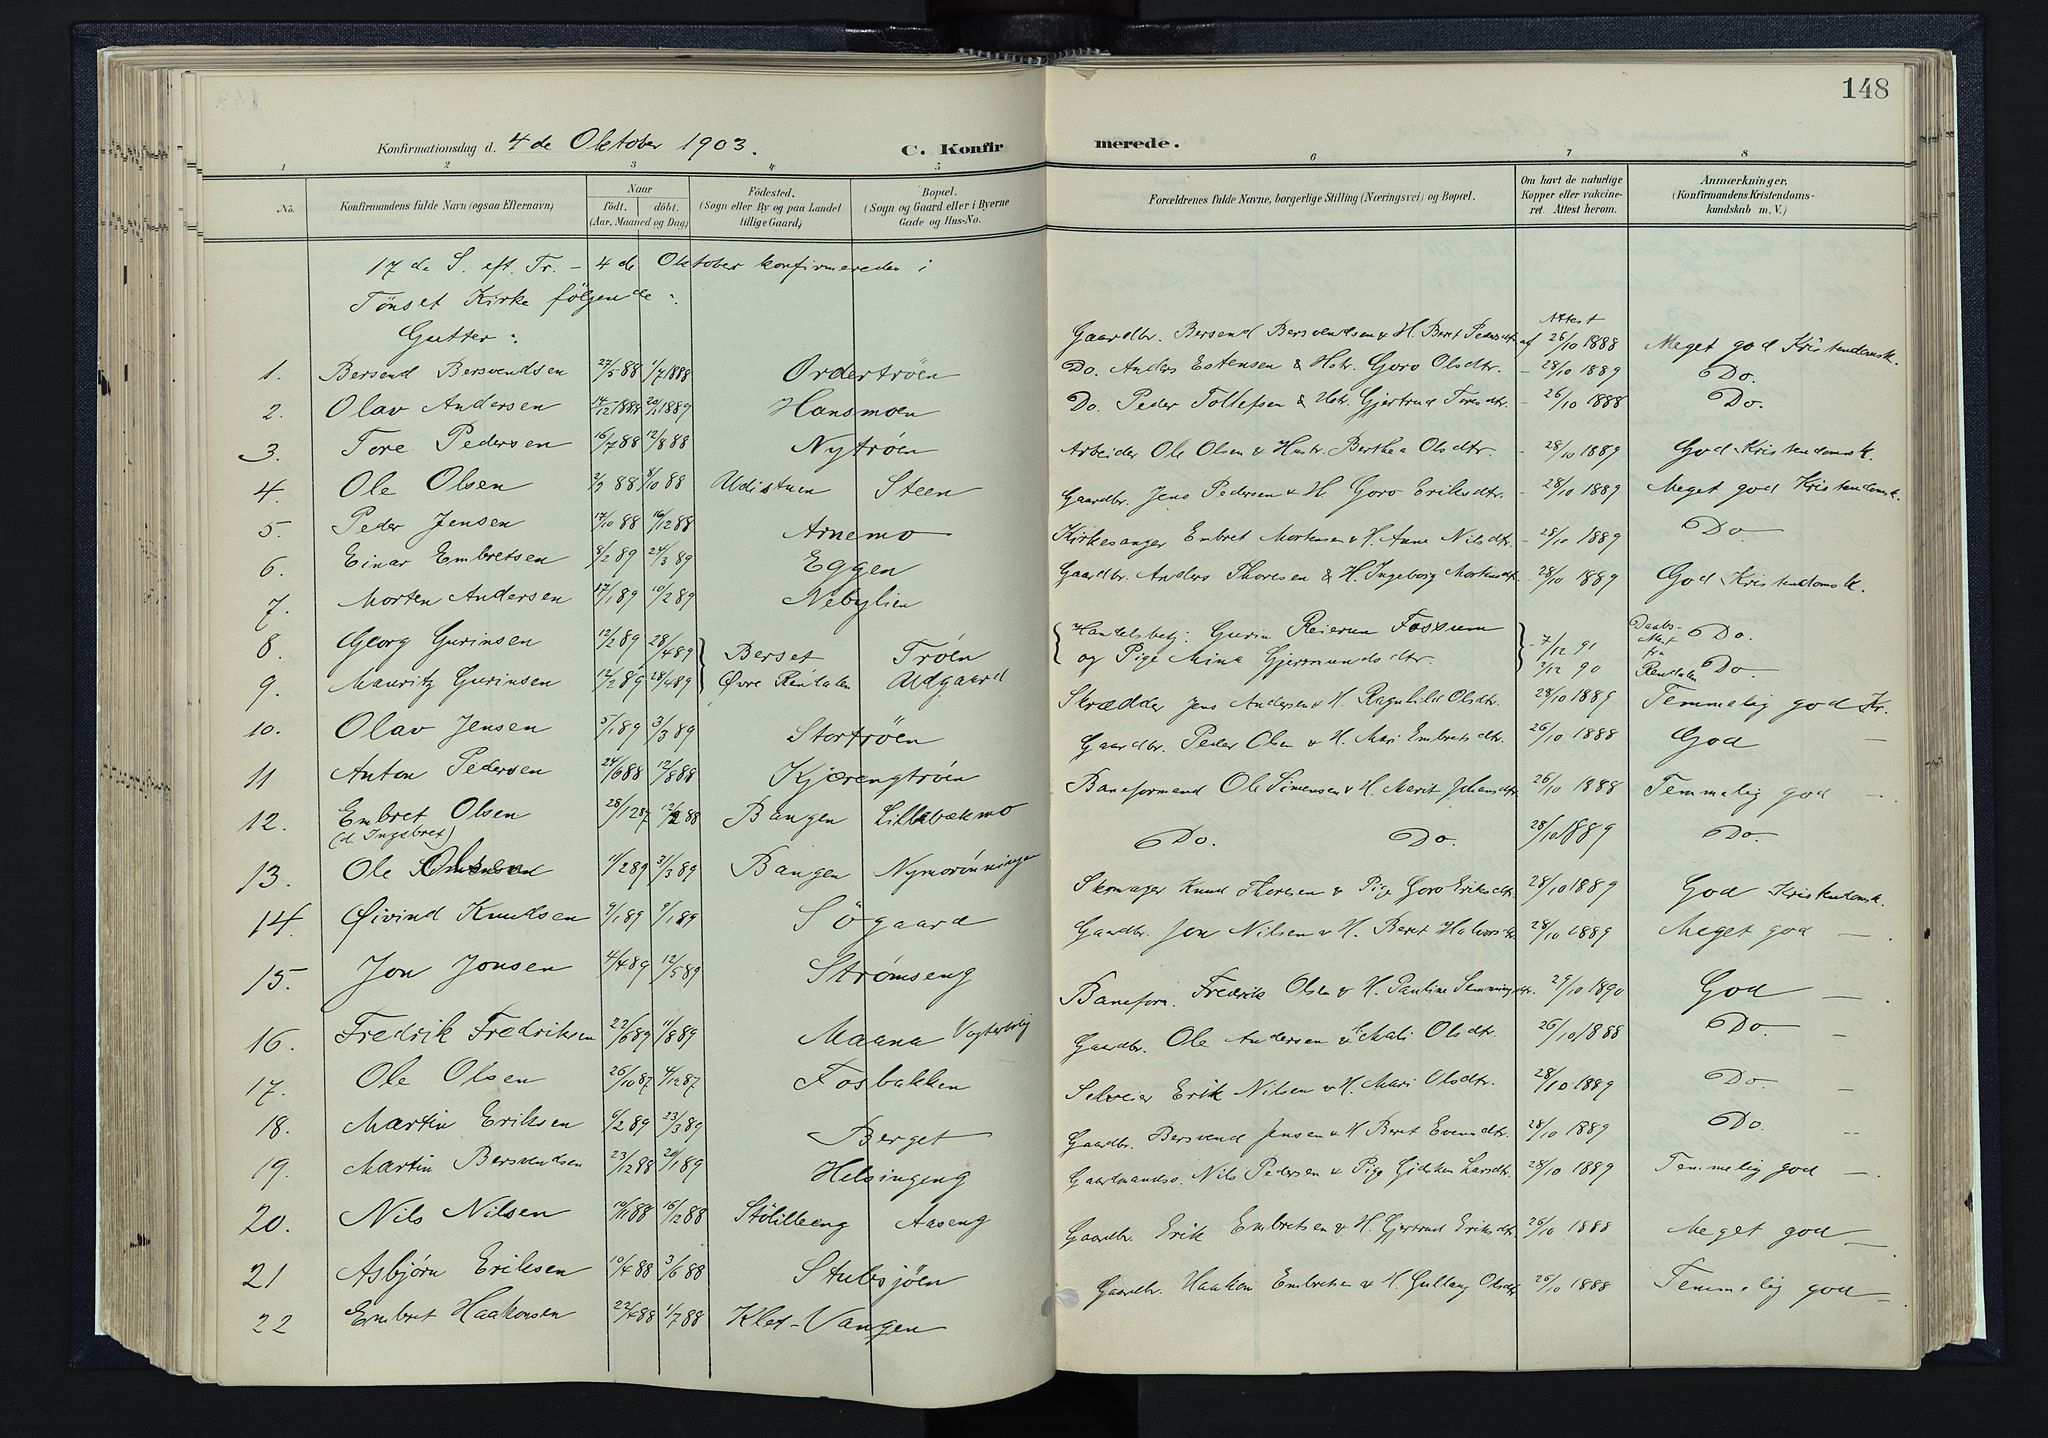 148
Konfirmationsdag d. 4 de Oktober 1903.
C. Konfirmerede.
1 2 3 4 5 6 7 8
No. Konfirmandens fulde Navn (ogsaa Efternavn) Naar födt. döbt. (Aar, Maaned og Dag) Födested. (Sogn eller By og paa Landet tillige Gaard) Bopæl. (Sogn og Gaard eller i Byerne Gade og Hus-No. Forældrenes fulde Navne, borgerlige Stilling (Næringsvei) og Bopæl. Om havt de naturlige Kopper eller vaccineret. Attest herom. Anmærkninger. (Konfirmandens Kristendomskundskab m. V.)
17 de S. eft. Tr. - 4 de Oktober konfirmeredes i
Tønset Kirke følgende:
Gutter:
1. Bersend Bersvendsen 27/5 88 1/7 1888 Ordertrøen Gaardbr. Bersend Bersvendsen & H. Beret Pedersdtr. Attest af 26/10 1888 Meget god Kristendomsk.
2. Olav Andersen 14/12 1888 20/1 1889 Hansmoen Do. Anders Estensen & Hstr. Goro Olsdtr. - 28/10 1889 Do.
3. Tore Pedersen 16/7 88 12/8 88 Nytrøen Do. Peder Tollefsen & Hstr. Gjertrud Toresdtr. - 26/10 1888 Do.
4. Ole Olsen 2/9 88 8/10 88 Aldistuen Steen Arbeider Ole Olsen & Hustr. Berthea Olsdtr. - 28/10 1889 God Kristendomsk.
5. Peder Jensen 17/10 88 16/12 88 Arnemo Gaardbr. Jens Pedersen & H. Goro Eriksdtr. - 28/10 1889 Meget god Kristendomsk.
6. Einar Embretsen 8/2 89 24/3 89 Eggen Kirkesanger Embret Mortensen & H. Anne Nilsdtr. - 28/10 1889 Do.
7. Morten Andersen 17/1 89 10/2 89 Nebylien Gaardbr. Anders Thoresen & H. Ingeborg Mortensdtr. - 28/10 1889 God Kristendomsk.
8. Georg Gurinsen 12/2 89 28/4 89 Berset Trøen Handelsbetj. Gurin Reiersen Fossum - 7/12 91 Daabs-Attest fra Rendalen Do.
9. Mauritz Gurinsen 12/2 89 28/4 89 Øvre Rendalen Aldgaard og Pige Mina Gjermundsdtr. 2/12 90 Do.
10. Olav Jensen 5/1 89 3/3 89 Stortrøen Skrædder Jens Andersen & H. Ragnhild Olsdtr. 28/10 1889 Temmelig god Kr.
11 Anton Pedersen 24/6 88 12/8 88 Kjærengtrøen Gaardbr. Peder Olsen & H. Mari Embretsdtr. 26/10 1888 God -
12. Embret Olsen (d. Ingebret) 28/12 87 12/2 88 Bangen Lillebækmo Baneformand Ole Simensen & H. Marit Johansdtr. 26/10 1888 Temmelig god -
13. Ole Olsen 1/2 89 31/3 89 Bangen Nymorønningen Do. Do. 28/10 1889 Do.
14. Øivind Knudsen 9/1 89 9/1 89 Søgaard Skomager Knud Thoresen & Pige Goro Eriksdtr. 28/10 1889 God Kristendomsk.
15. Jon Jonsen 4/4 89 12/5 89 Strømseng Gaardbr. Jon Nilsen & H. Beret Halvorsdtr. 28/10 1889 Meget god -
16. Fredrik Fredriksen 22/6 89 11/8 89 Maana Vogterbolig Baneform. Fredrik Olsen & H. Pauline Semmingsdtr. 29/10 1890 God -
17. Ole Olsen 26/10 87 4/12 87 Fosbakken Gaardbr. Ole Andersen & H. Mali Olsdtr. 26/10 1888 Do. -
18. Martin Eriksen 6/2 89 23/3 89 Berget Selveier Erik Nilsen & H. Mari Olsdtr. 28/10 1889 Do. -
19. Martin Bersvendsen 23/12 88 20/1 89 Helsingeng Gaardbr. Bersvend Jensen & H. Beret Evensdtr. 28/10 1889 Do. -
20. Nils Nilsen 16/12 88 Stølilleeng Aaseng Gaardmandss. Nils Pedersen & Pige Gidsken Larsdtr. 28/10 1889 Temmelig god -
21 Asbjørn Eriksen 10/4 88 3/6 88 Stubsjøen Gaardbr. Erik Embretsen & H. Gjertrud Eriksdtr. 26/10 1888 Meget god -
22 Embret Haakonsen 22/4 88 1/7 88 Klet-Vangen Gaardbr. Haakon Embretsen & H. Gullaug Olsdtr. 26/10 1888 Temmelig god -